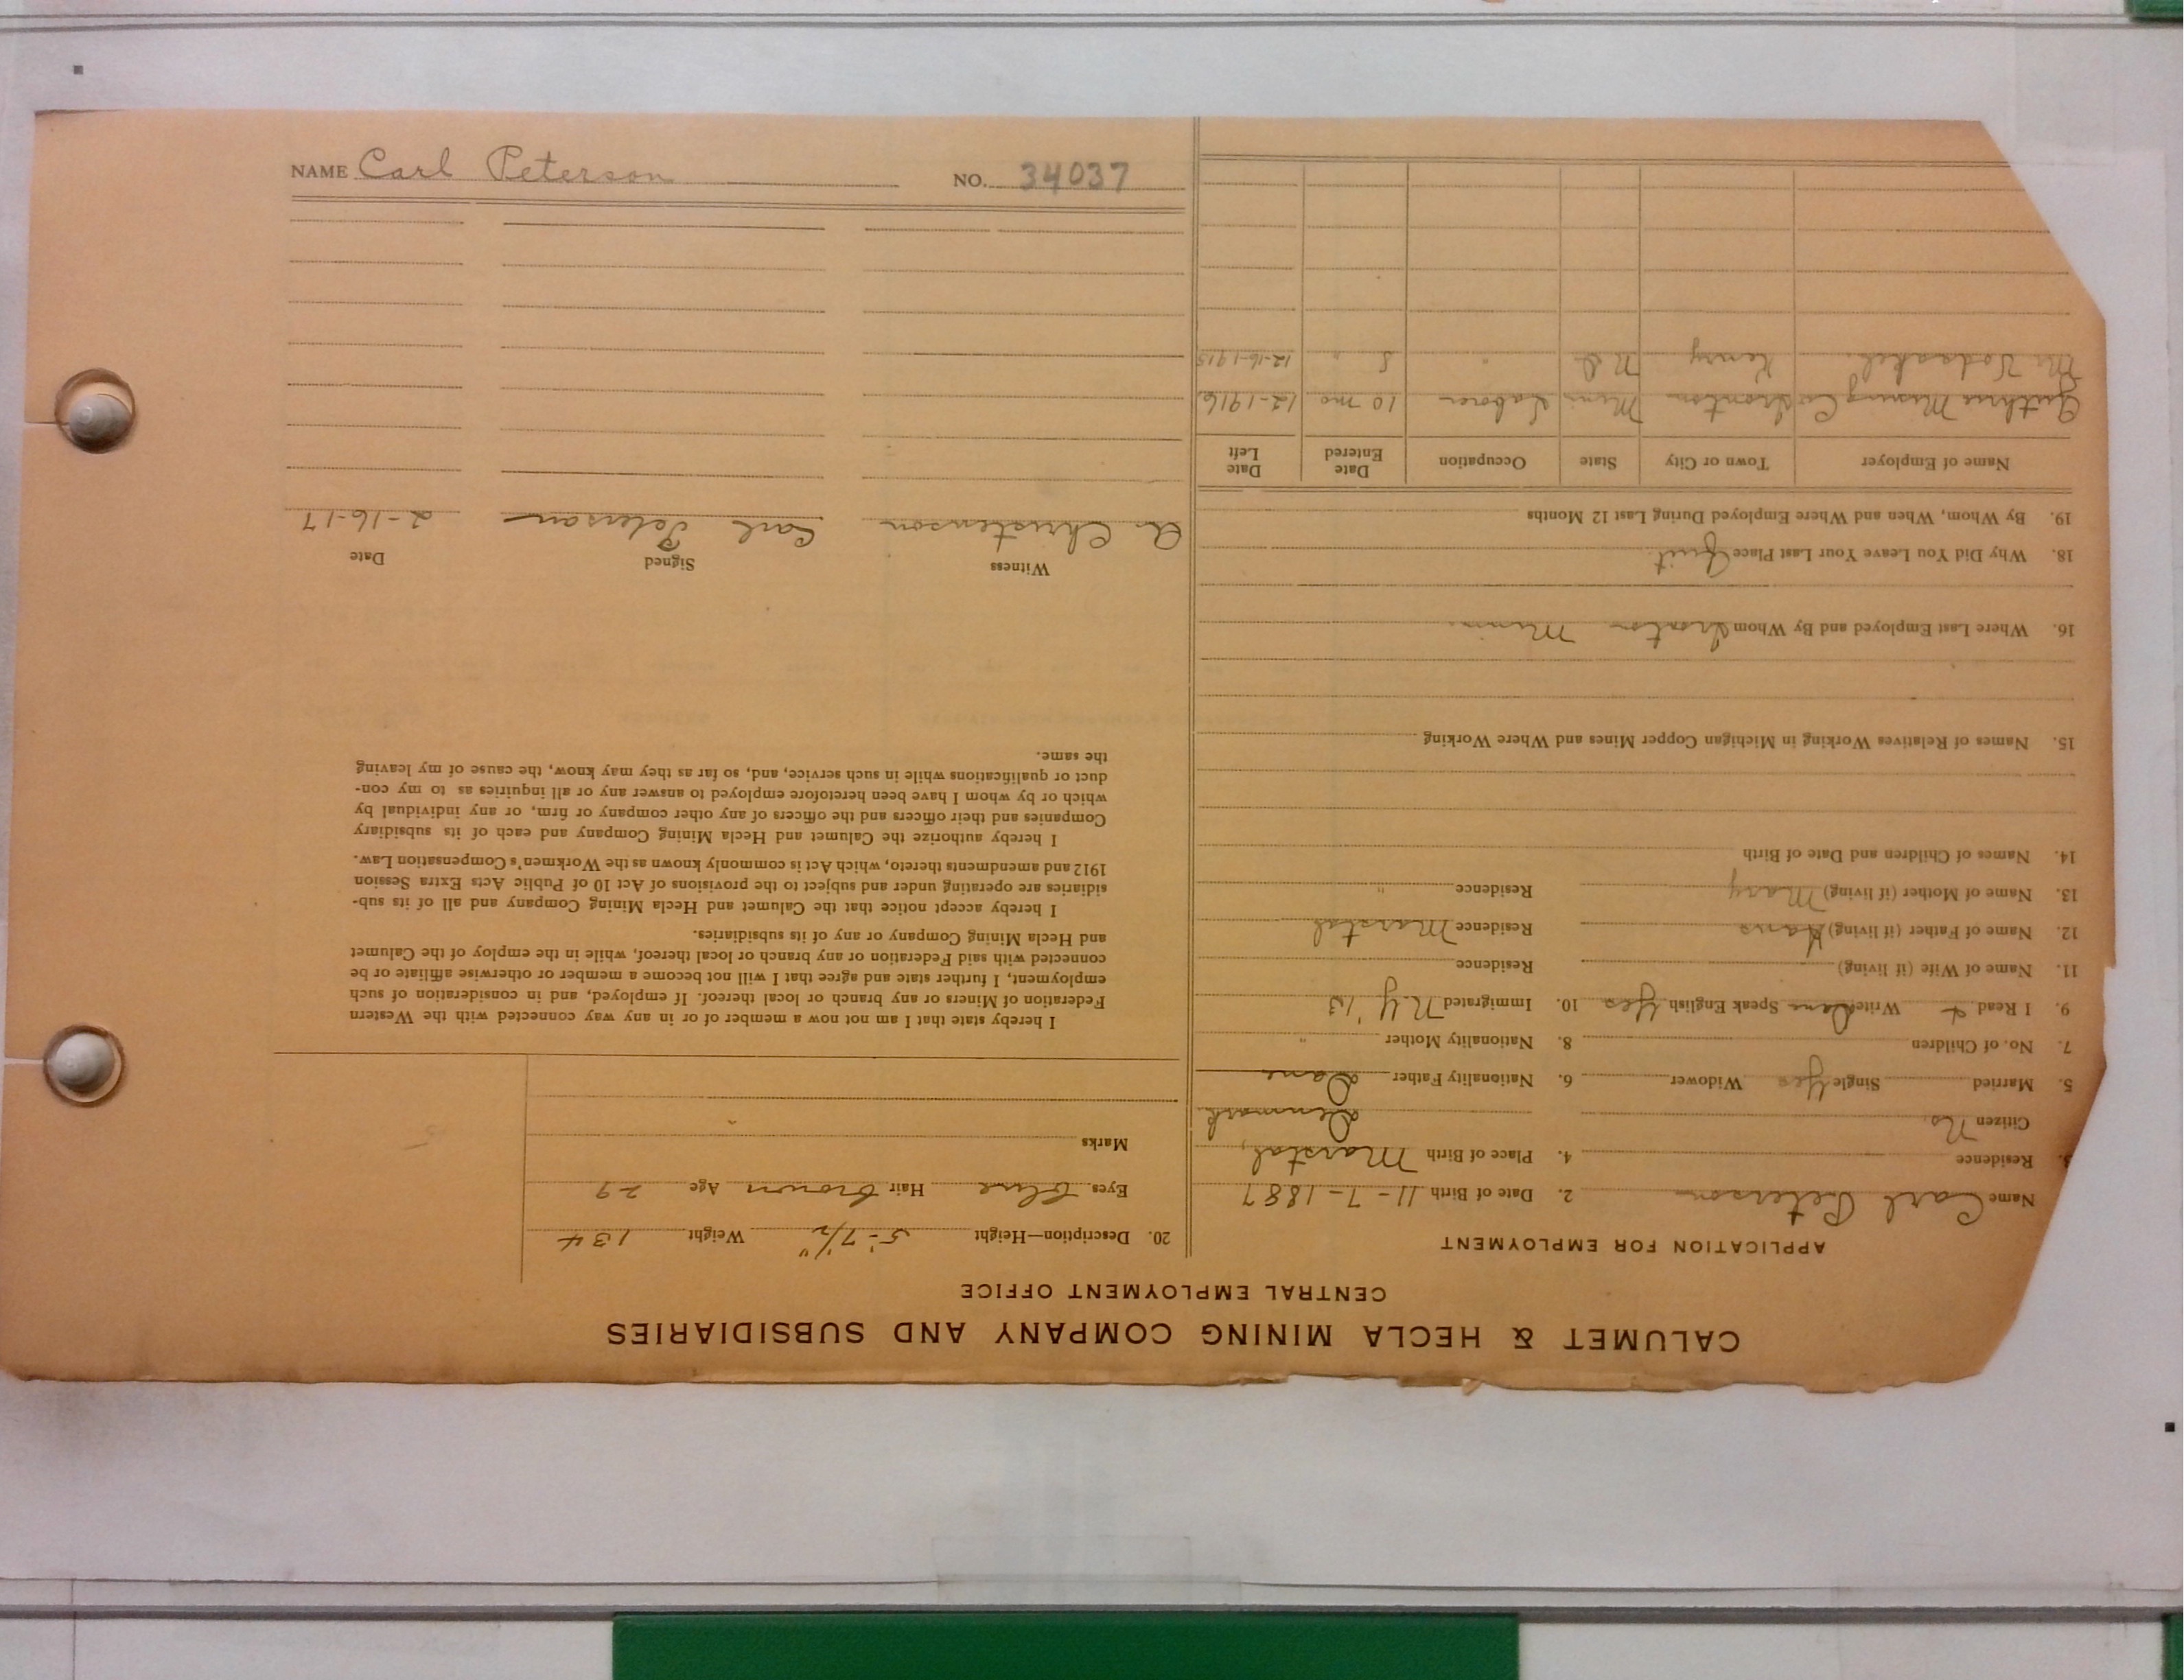 NAME Carl Peterson NO. 34037
CALUMET & HECLA MINING COMPANY AND SUBSIDIARIES
CENTRAL EMPLOYMENT OFFICE
APPLICATION FOR EMPLOYMENT
Name Carl Peterson 2. Date of Birth 11-7-1887
3. Residence 4. Place of Birth Marstal,
Citizen No. Denmark
5. Married Single Yes Widower 6. Nationality Father Dane
7. No. of Children 8. Nationality Mother "
9. I Read & Write Dane Speak English Yes 10. Immigrated N.Y. '13
11. Name of Wife (if living) Residence
12. Name of Father (if living) Hans Residence Marstal
13. Name of Mother (if living) Mary Residence "
14. Names of Children and Date of Birth
15. Names of Relatives Working in Michigan Copper Mines and Where Working
16. Where Last Employed and By Whom Ironton Minn.
18. Why Did You Leave Your Last Place Quit.
19. By Whom, When and Where Employed During Last 12 Months
Name of Employer Town or City State Occupation Date Entered Date Left
Guthrie Mining Co Ironton Minn Laborer 10 mo 12-1916
Mr. Henry N.D. " 5 " 12-16-1915
20. Description—Height 5'-7 1/2" Weight 134
Eyes Blue Hair Brown Age 29
Marks
I hereby state that I am not now a member of or in any way connected with the Western
Federation of Miners or any branch or local thereof. If employed, and in consideration of such
employment, I further state and agree that I will not become a member or otherwise affiliate or be
connected with said Federation or any branch or local thereof, while in the employ of the Calumet
and Hecla Mining Company or any of its subsidiaries.
I hereby accept notice that the Calumet and Hecla Mining Company and all of its sub-
sidiaries are operating under and subject to the provisions of Act 10 of Public Acts Extra Session
1912 and amendments thereto, which Act is commonly known as the Workmen's Compensation Law.
I hereby authorize the Calumet and Hecla Mining Company and each of its subsidiary
Companies and their officers and the officers of any other company or firm, or any individual by
which or by whom I have been heretofore employed to answer any or all inquiries as to my con-
duct or qualifications while in such service, and, so far as they may know, the cause of my leaving
the same.
Witness Signed Date
A. Christenson Carl Peterson 2-16-17